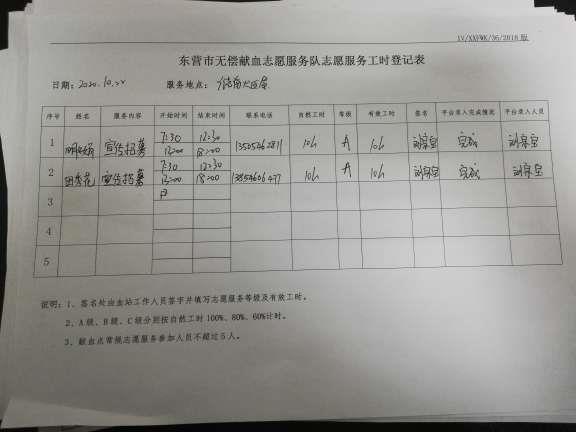 IV/XXFWK/36/2018版
东营市无偿献血志愿服务队志愿服务工时登记表
日期：2020.10.22 服务地点：
序号 姓名 服务内容 开始时间 结束时间 联系电话 自然工时 等级 有效工时 签名 平台录入完成情况 平台录入人员
1 宣传招募 7:30 12:30 10h A 10h 完成
13:00 18:00
2 田秀花 宣传招募 7:30 12:30 10h A 10h 完成
13:00 18:00
3
4
5
说明：1、签名处由血站工作人员签字并填写志愿服务等级及有效工时。
2、A级、B级、C级分别按自然工时100%、80%、60%计时。
3、献血点常规志愿服务参加人员不超过5人。